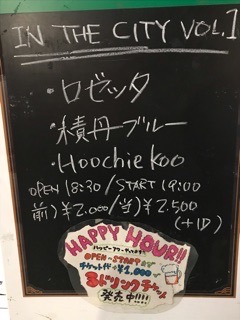 IN THE CITY VOL.1
・ロゼッタ
・積丹ブルー
・Hoochie Koo
OPEN 18:30 / START 19:00
前)¥2.000/当)¥2.500
(+1D)
HAPPY HOUR!!
ハッピーアワーやってます
OPEN~STARTまで
チケット代+¥1,000で
3ドリンクチャーム
発売中!!!!